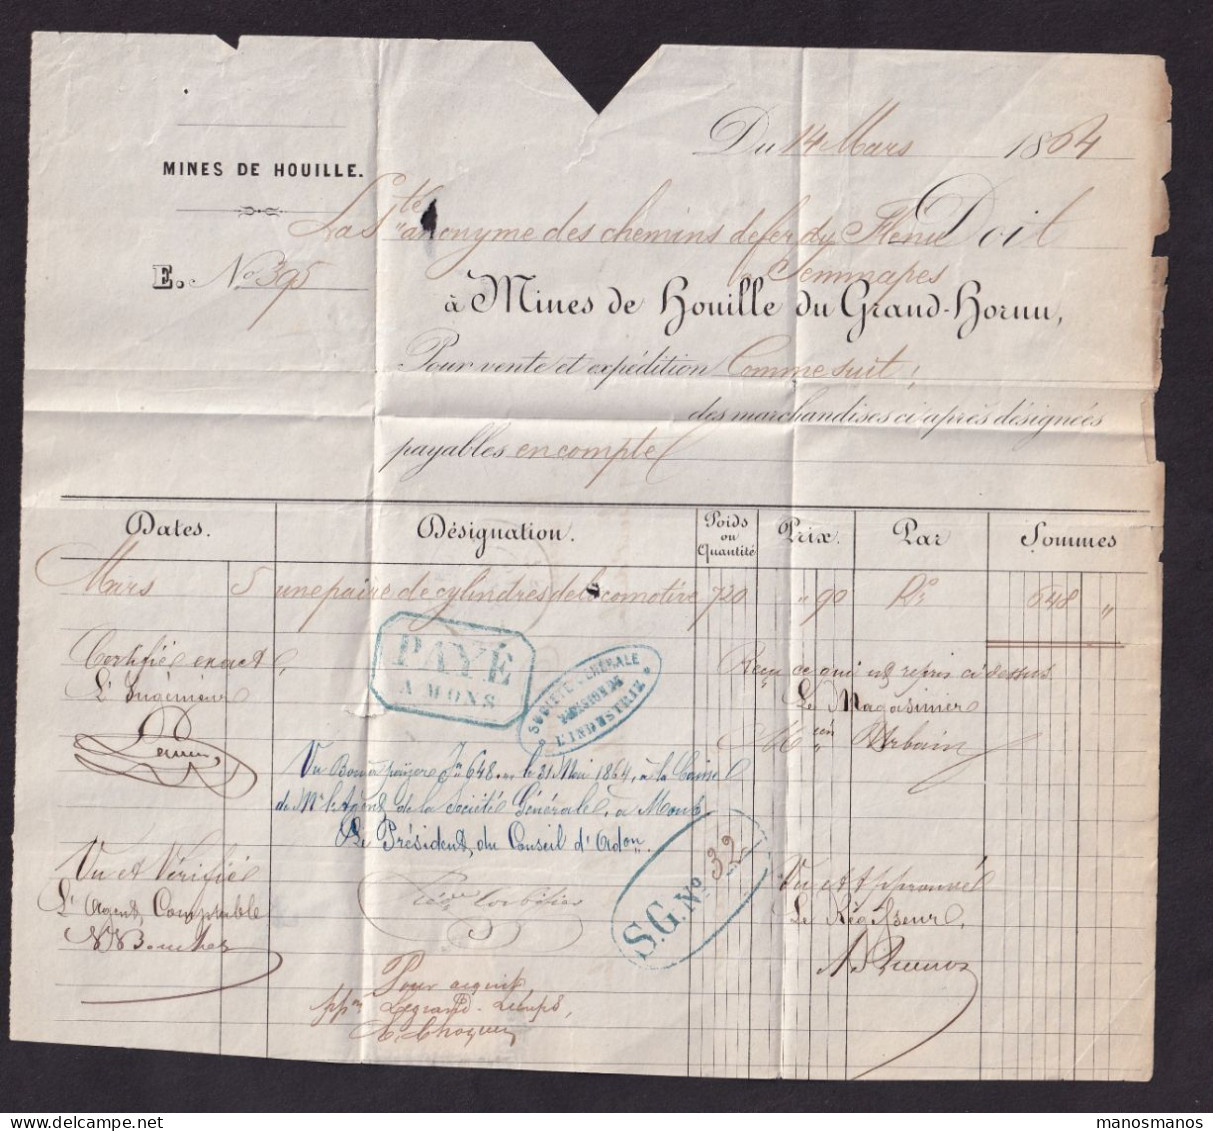 Du 14 Mars 1864
MINES DE HOUILLE.
La Sté anonyme des chemins de fer du Flenu Doit
Jemmapes
E. No 395
à Mines de Houille du Grand-Hornu,
Pour vente et expédition Comme suit,
des marchandises ci après désignées
payables en compte
Dates. Désignation. Poids ou Quantité Prix. Par Sommes
Mars 5 une paire de cylindres de locomotive 720 " 90 Ko 648 "
Certifié exact,
L'Ingénieur
PAYÉ
A MONS
SOCIÉTÉ GÉNÉRALE
L'INDUSTRIE
Reçu ce qui est repris ci dessus
Le Magasinier
Urbain
Vu Bon à payer Fr 648 " le 31 Mai 1864, à la Caisse
de Mr l'Agent de la Société Générale, à Mons
Le Président du Conseil d'Adon.
S.G. No 32
Vu et Vérifié
L'Agent Comptable
Vu et Approuvé
Le Régisseur,
Pour acquit,
ppon Legrand-